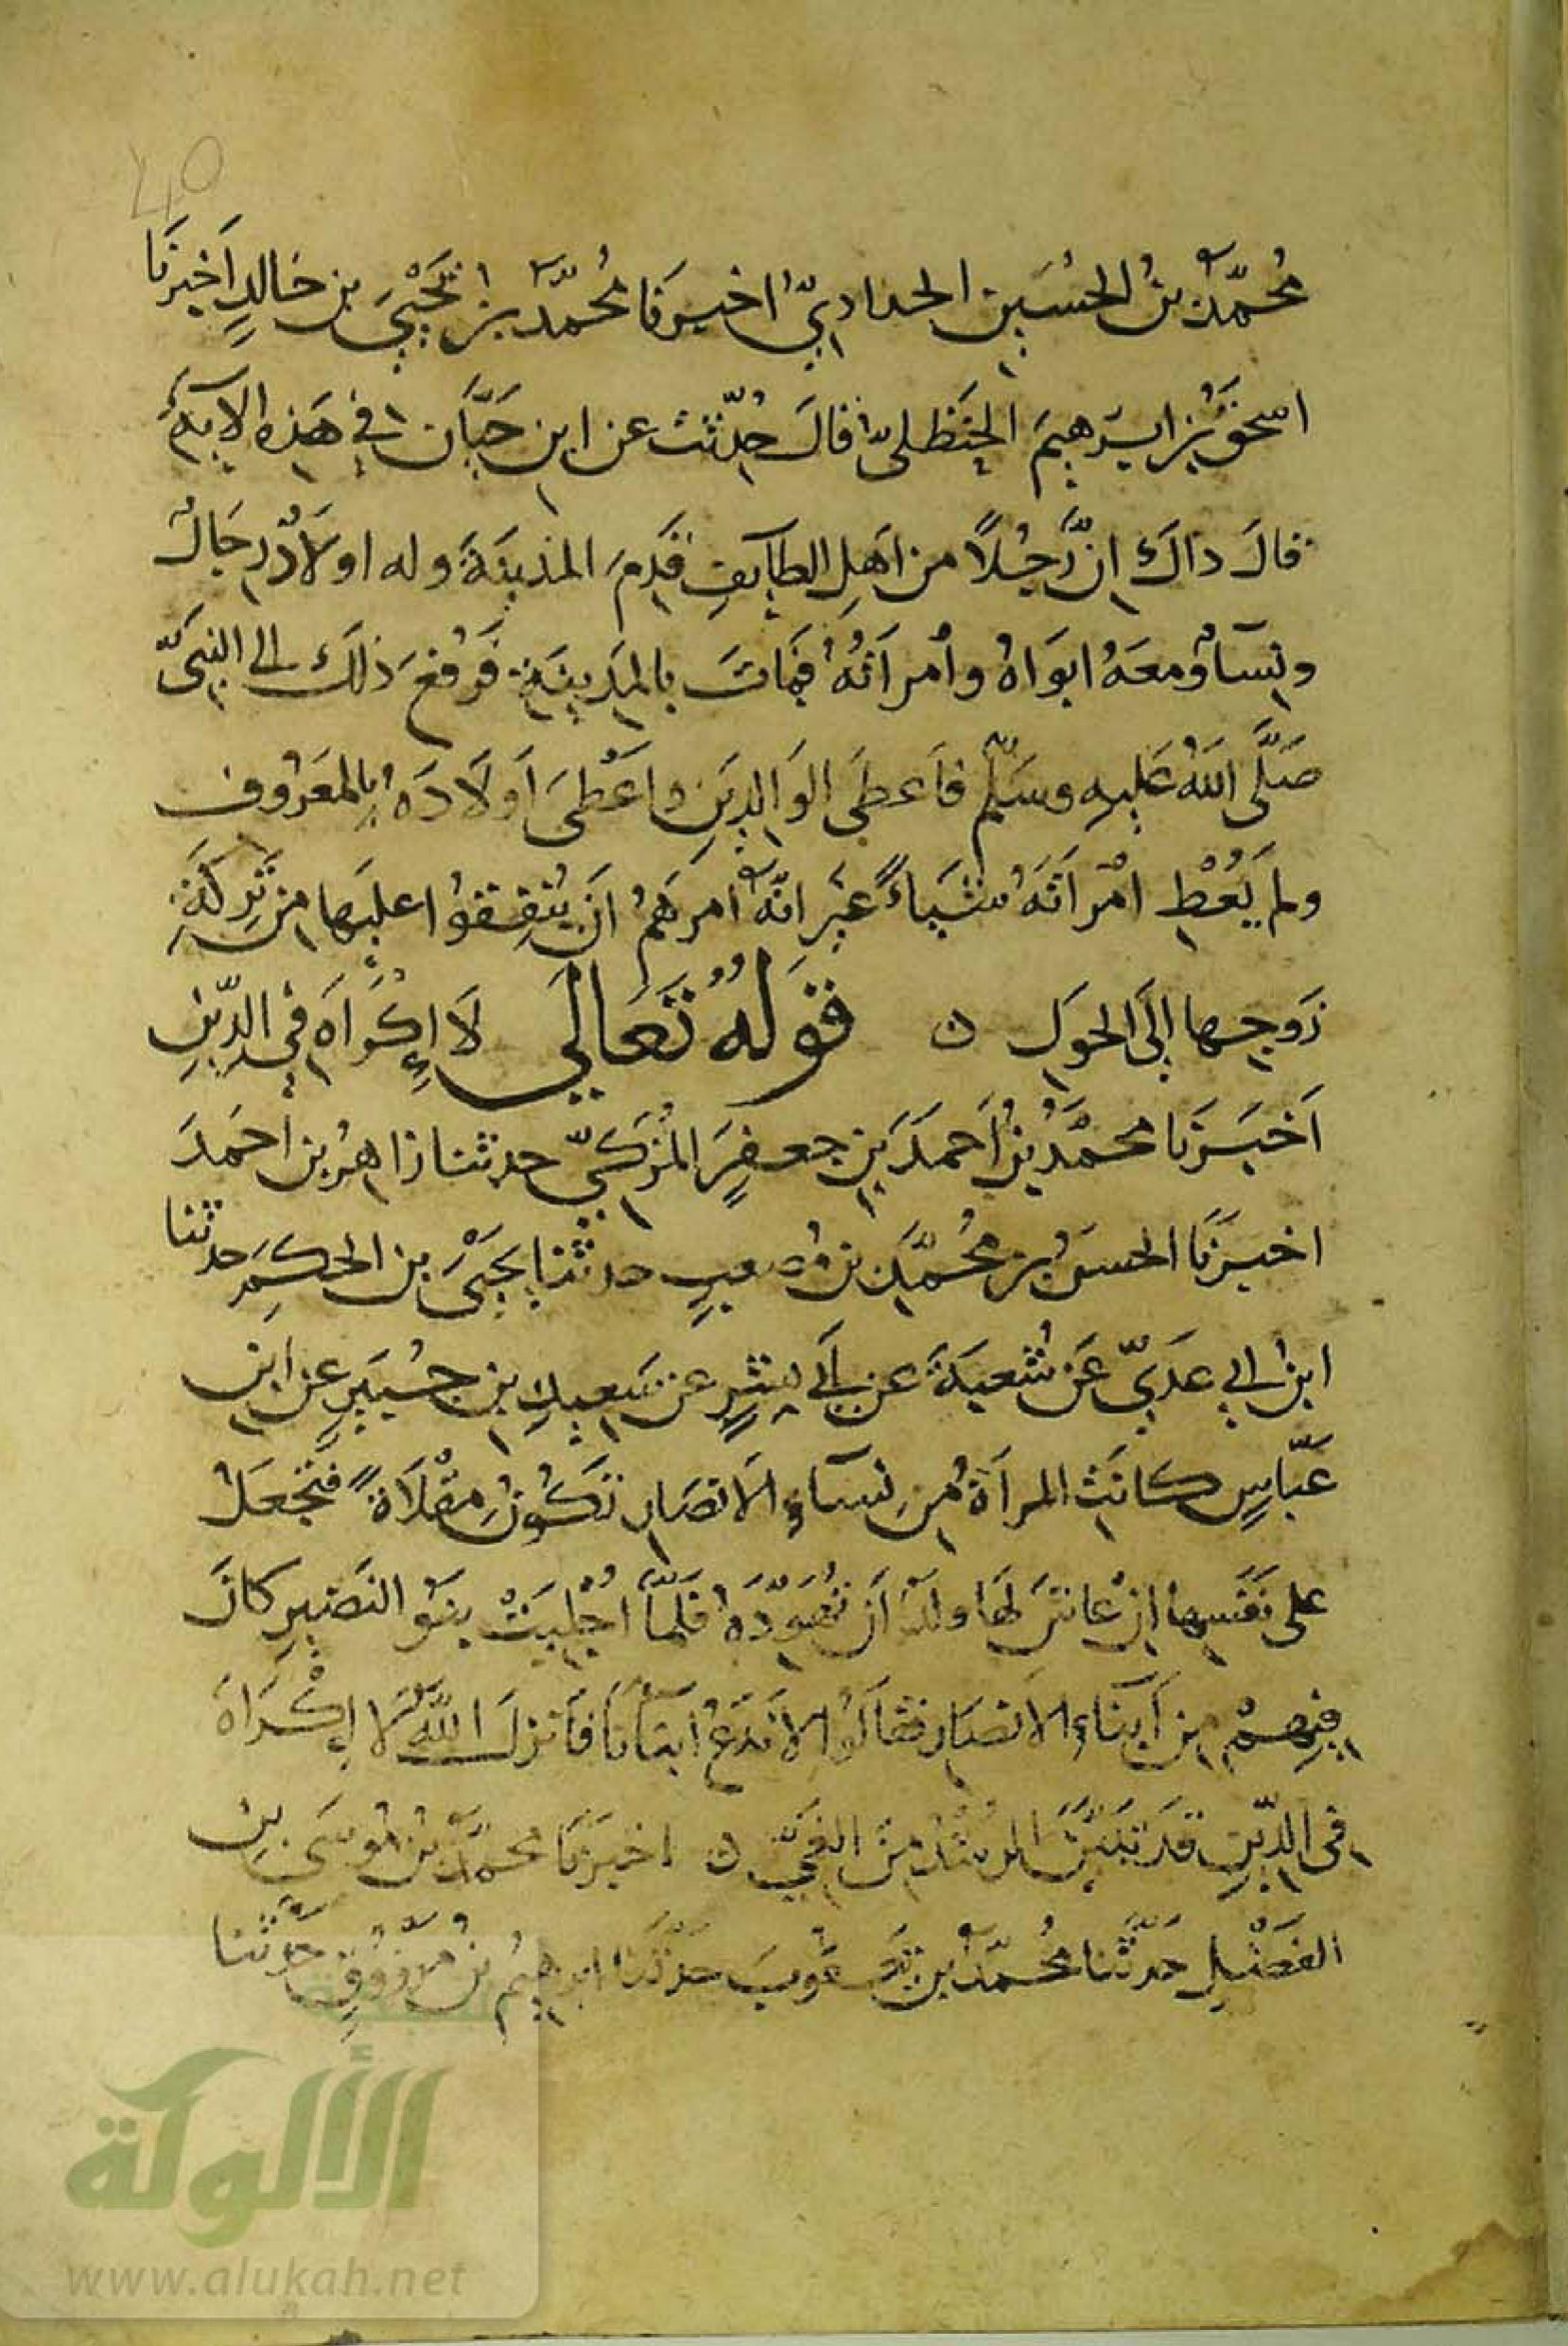 40
مُحمَّدُ بنُ الحُسَينِ الحدادِيُّ اخبرَنَا مُحمَّدُ بنُ يَحْيَى بن خالدٍ اَخبرَنَا
اسحقُ بنُ ابرٰهيمَ الحَنظَلىُّ قالَ حُدِّثت عن ابنِ حَيَّان في هَذِه الآيةِ
قالَ ذاكَ انَّ رَجُلاً من اَهلِ الطآيفِ قَدِمَ المدينَةَ وله اولَادٌ رجَالٌ
ونِسآءٌ ومعَهُ ابوَاهُ وأمراَتُهُ فمَاتَ بالمَدِينَةِ فرُفعَ ذلكَ الى النبىِّ
صَلَّى اللهُ عَليهِ وسَلَّم فاَعطَى الوَالِدَينِ واَعْطىَ اَولَادَهُ بِالمعَرُوف
ولم يُعْطِ امْراَتَهُ شَيأً غيرَ انَّهُ اَمرَهُم اَن يُنفِقوُا عليَها مِن تَرِكَةِ
زَوجِها الَى الحَولِ ن قَولُهُ تَعَالَى لَا إِكْرَاهَ فِي الدِّينِ
اَخبَرَنَا محمَّدُ بنُ اَحمدَ بنِ جعفرٍ المُزكِيّ حدثنا زاهرُ بن احمَدَ
اخبرَنَا الحسنُ بن مُحُمَّدِ بنِ مُصعبٍ حدثنا يَحيَى بن الحكَمِ حدثنا
ابنُ ابي عَدِيٍّ عَن شُعبَةَ عن اَبي بِشرٍ عن سَعِيدِ بنِ جُبَيرٍ عن ابنِ
عَبَّاسٍ كانَتْ المراَةُ مِن نِسآءِ الاَنصَارِ تَكُونُ مِقْلَاةً فتَجعَلُ
على نَفسِها اِن عاشَ لَها ولدٌ اَن تُهَوِّدَهُ فلَمَّا اُجْلِيَتْ بنَو النَضيرِ كانَ
فِيهمْ مِن اَبنآءِ الاَنصَارِ فقَالَوُا لاَ نَدَعُ اَبنآنَا فاَنزلَ اللهُ لَا إِكْرَاهَ
فى الدِّينِ قَد تَبَيَّنَ الرُشدُ مِنَ الغَيِّ ن اخبَرَنَا محمَّدُ بنُ مُوسَى بنِ
الفَضْلِ حدثَنا مُحُمَّدُ بن يَعقُوبَ حدثَنَا ابرهيمُ بنُ مرزُوقٍ حدثنا
الألوكة
www.alukah.net